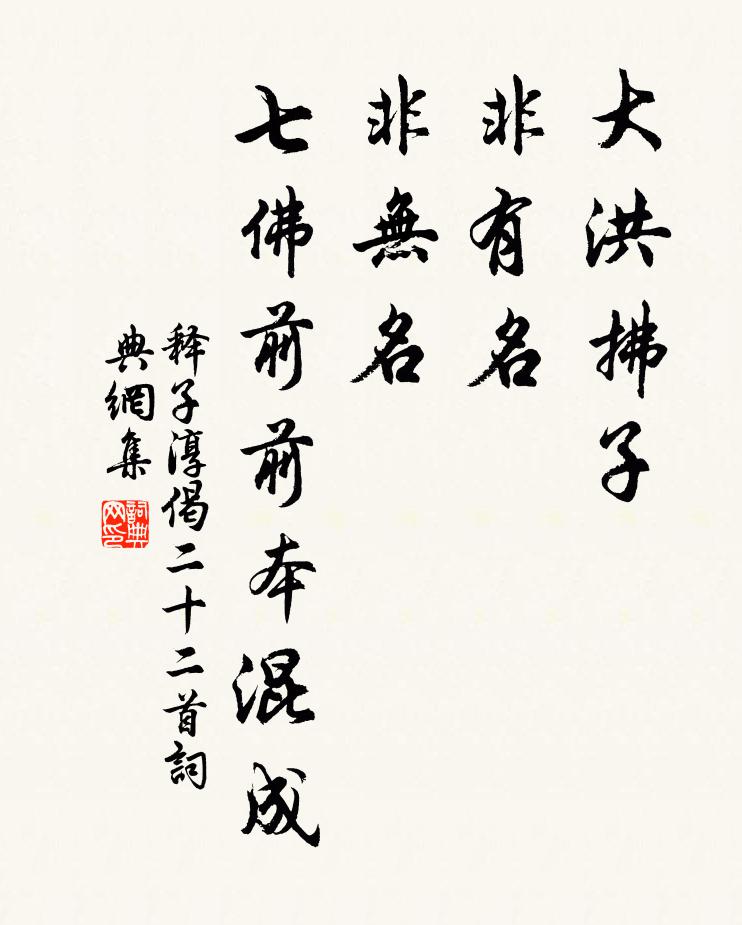 大洪拂子
非有名
非無名
七佛前前本混成
释子淳偈二十二首詞
典網集
詞典
网印